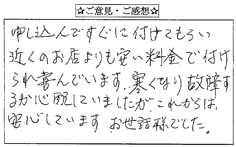 ☆ご意見・ご感想☆
申し込んですぐに付けてもらい
近くのお店よりも安い料金で付け
られ喜んでいます。寒くなり故障す
るか心配していましたが、これからは、
安心しています お世話様でした。